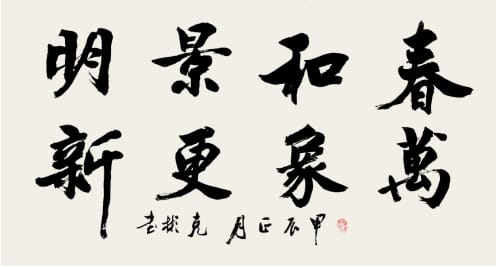 春和景明
萬象更新
甲辰正月克彬书